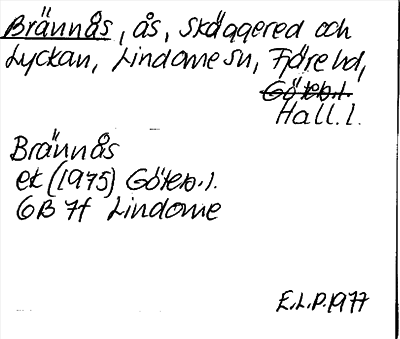 Brännås, ås, Skäggered och
Lyckan, Lindome sn, Fjäre hd,
Göteb.l.
Hall.l.
Brännås
ek (1975) Göteb.l.
6B 7f Lindome
E.L.P.1977